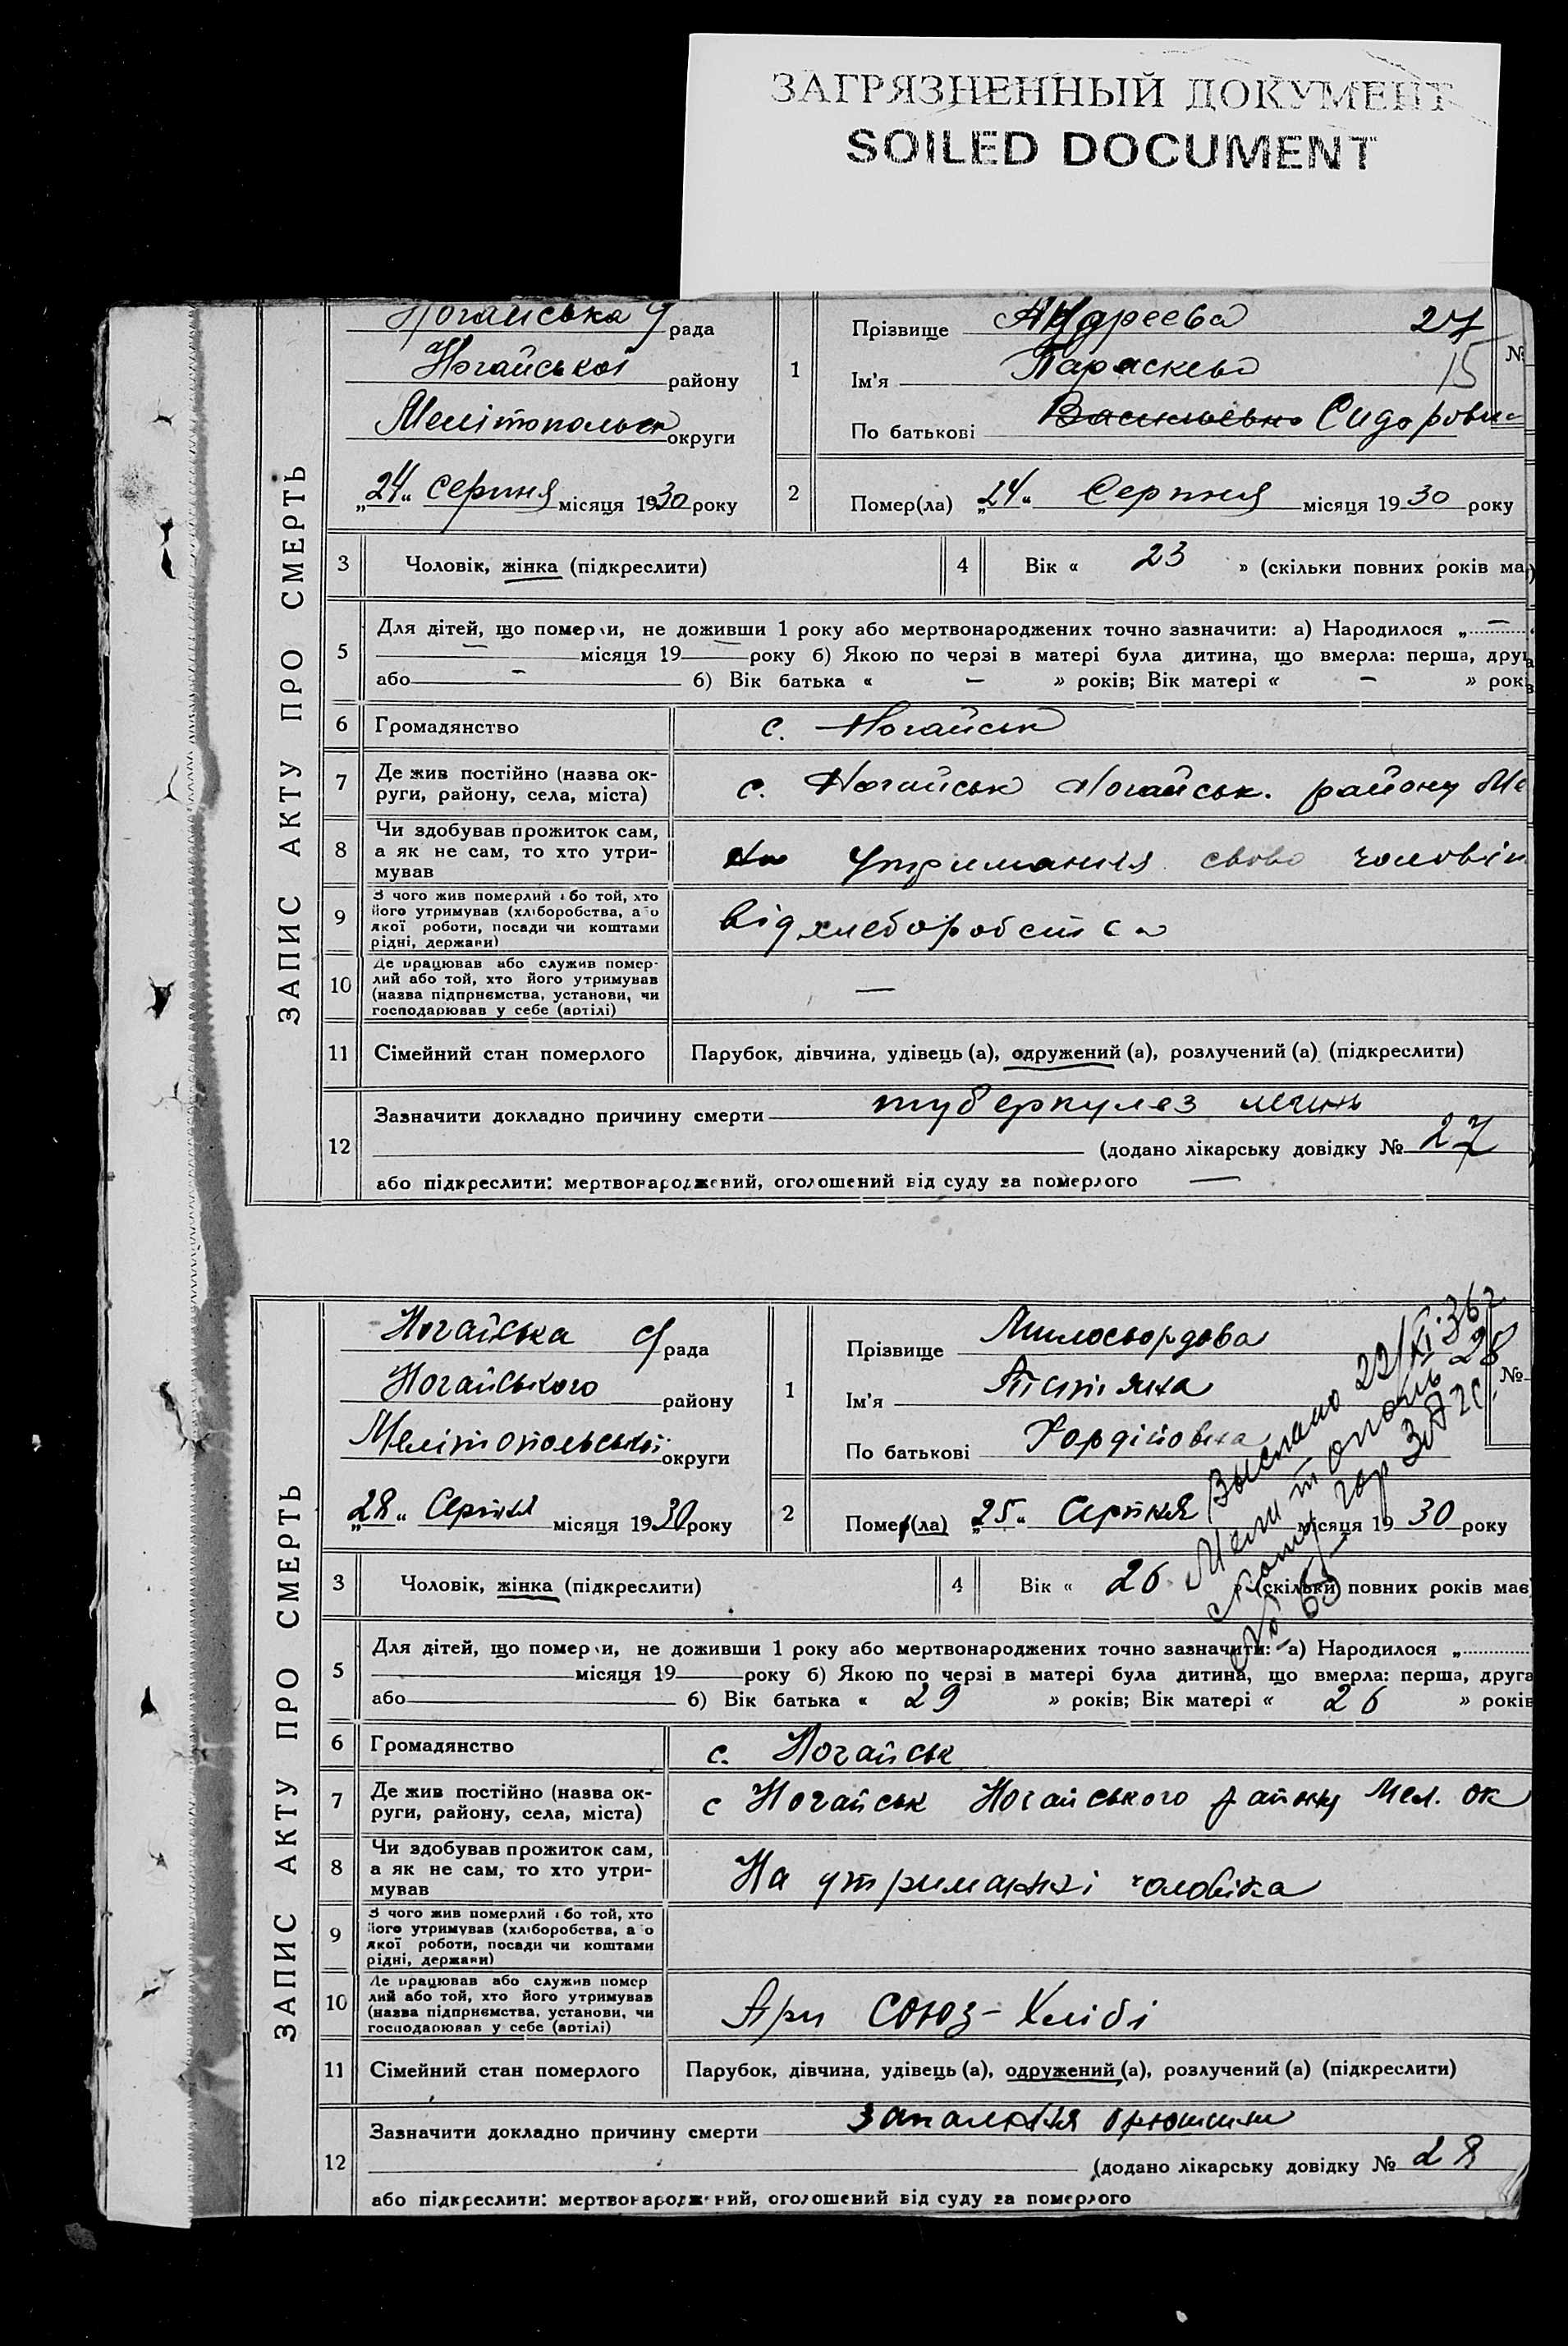 ЗАГРЯЗНЕННЫЙ ДОКУМЕНТ
SOILED DOCUMENT
ЗАПИС АКТУ ПРО СМЕРТЬ
Ногайська рада
Ногайської району
Мелітопольск округи
„24“ серпня місяця 1930 року
1
Прізвище Андреева 27
№
Ім'я Параскева 15
По батькові Васильевна Сидоровн
2
Помер(ла) „24“ Серпня місяця 1930 року
3 Чоловік, жінка (підкреслити)
4 Вік « 23 » (скільки повних років ма
5 Для дітей, що померли, не доживши 1 року або мертвонароджених точно зазначити: а) Народилося „ —
— місяця 19 — року б) Якою по черзі в матері була дитина, що вмерла: перша, друга
або — б) Вік батька « — » років; Вік матері « — » років
6 Громадянство с. Ногайськ
7 Де жив постійно (назва ок-
руги, району, села, міста) с. Ногайськ Ногайськ. району Ме
8 Чи здобував прожиток сам,
а як не сам, то хто утри-
мував
на утримання свово чоловік
9 З чого жив померлий або той, хто
його утримував (хліборобства, або
якої роботи, посади чи коштами
рідні, держави)
від хлеборобства
10 Де працював або служив помер-
лий або той, хто його утримував
(назва підприємства, установи, чи
господарював у себе (артілі)
—
11 Сімейний стан померлого Парубок, дівчина, удівець (а), одружений (а), розлучений (а) (підкреслити)
12 Зазначити докладно причину смерти туберкулез легинь
(додано лікарську довідку № 27
або підкреслити: мертвонароджений, оголошений від суду за померлого —
ЗАПИС АКТУ ПРО СМЕРТЬ
Ногайська рада
Ногайського району
Мелітопольської округи
„28“ Серпня місяця 1930 року
1
Прізвище Милосьордова
№
28
Ім'я Титяна
По батькові Гордійовна
Выслано 22/XI-36г
Мелитополь
гор ЗАГС
2
Помер(ла) „25“ Серпня місяця 1930 року
3 Чоловік, жінка (підкреслити)
4 Вік « 26 » (скільки повних років має
5 Для дітей, що померли, не доживши 1 року або мертвонароджених точно зазначити: а) Народилося „
місяця 19 року б) Якою по черзі в матері була дитина, що вмерла: перша, друга
або б) Вік батька « 29 » років; Вік матері « 26 » років
6 Громадянство с. Ногайськ
7 Де жив постійно (назва ок-
руги, району, села, міста) с Ногайськ Ногайського району Мел. ок
8 Чи здобував прожиток сам,
а як не сам, то хто утри-
мував
На утриманні чоловіка
9 З чого жив померлий або той, хто
його утримував (хліборобства, або
якої роботи, посади чи коштами
рідні, держави)
10 Де працював або служив помер
лий або той, хто його утримував
(назва підприємства, установи, чи
господарював у себе (артілі)
При союз-Хлібі
11 Сімейний стан померлого Парубок, дівчина, удівець (а), одружений (а), розлучений (а) (підкреслити)
12 Зазначити докладно причину смерти запалення брюшини
(додано лікарську довідку № 28
або підкреслити: мертвонароджений, оголошений від суду за померлого